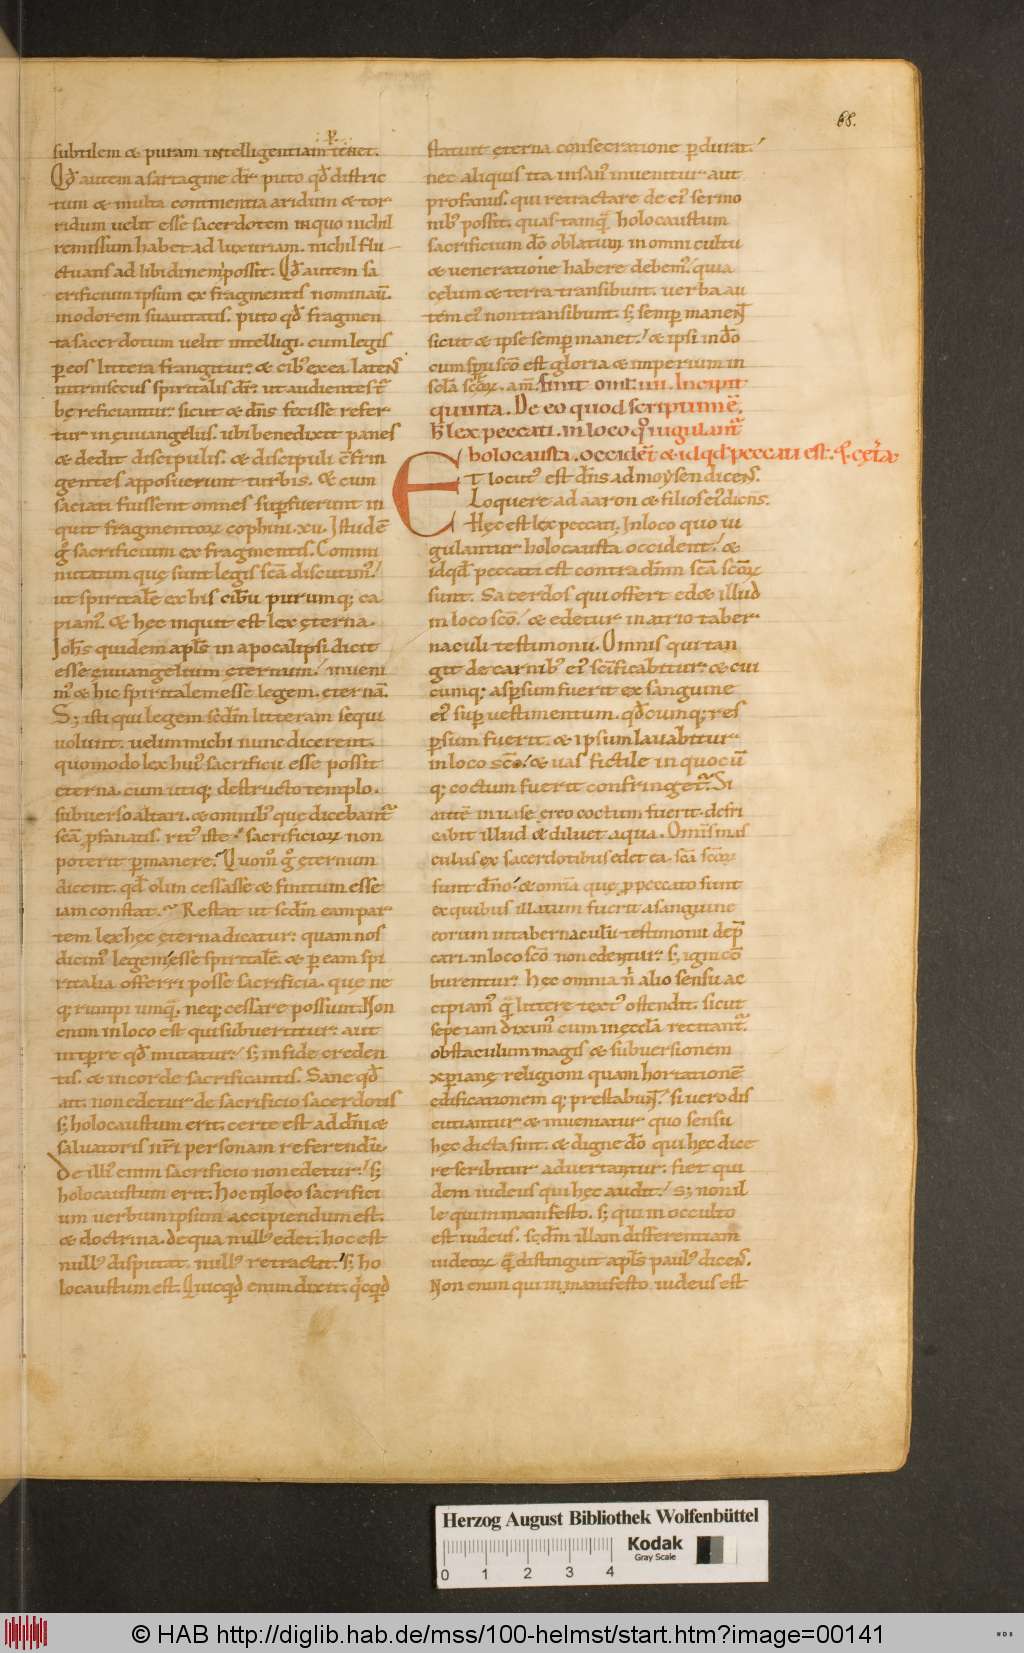 68.
subtilem & puram intelligentiam tenet.
Qđ autem a sartagine dr̄ puto qđ distric
tum & multa continentia aridum & tor
ridum uelit esse sacerdotem in quo nichil
remissum habet ad luxuriam. nichil flu
ctuans ad libidinem possit. Qđ autem sa
crificium ipsum ex fragmentis nominau̅.
in odorem suauitatis. puto qđ fragmen
ta sacerdotum uelit intelligi. cum legis
ꝑ eos littera frangitur. & cibꝰ ex ea latens
intrinsecus spiritalis dr̄. ut audientes
reficiantur. sicut & dn̅s fecisse refer
tur in ęuuangeliis. ubi benedixit panes
& dedit discipulis. & discipuli c̅frin
gentes apposuerunt turbis. & cum
saciati fuissent omnes supfuerunt in
quit fragmentoꝝ cophini .xii.
sacrificium ex fragmentis. Commi
nutatim quę sunt legis sc̅a discutimꝰ
ut spiritale̅ ex his cibu̅ purumq; ca
piamꝰ. & hęc inquit est lex ęterna.
Joh̅s quidem apl̅s in apocalipsi dicit
esse ęuuangelium ęternum. inueni
mꝰ & hic spiritalem esse legem. ęterna̅.
S; isti qui legem scd̅m litteram sequi
uolunt. uelim michi nunc dicerent.
quomodo lex huiꝰ sacrificii esse possit
ęterna. cum utiq; destructo templo.
subuerso altari. & omnibꝰ quę dicebant̃
sc̅a ꝓfanatis. ritꝰ iste sacrificioꝝ non
poterit ꝑmanere. Quom̊ g̊ ęternum
dicent. qđ olim cessasse & finitum esse
iam constat. Restat ut scd̅m eam par
tem lex hęc ęterna dicatur. quam nos
dicimꝰ legem esse spiritale̅. & ꝑ eam spi
ritalia offerri posse sacrificia. que ne
q; rumpi umq̅. neq; cessare possunt. Non
enim in loco est qui subuertitur. aut
in tp̅re qđ mutatur. s; in fide creden
tis. & in corde sacrificantis. Sane qđ
ait. non edetur de sacrificio sacerdotis
s; holocaustum erit. certe est ad dn̅i &
saluatoris nr̅i personam referendu̅.
De illiꝰ enim sacrificio non edetur. s;
holocaustum erit. hoc in loco sacrifici
um uerbum ipsum accipiendum est.
& doctrina. de qua nullꝰ edet. hoc est
nullꝰ disputat. nullꝰ retractat. s; ho
locaustum est. Quicqđ enim dixit. qicqđ
statuit ęterna consecratione ꝑdurat.
nec aliquis ita insanꝰ inuenitur aut
profanus. qui retractare de eiꝰ sermo
nibꝰ possit. quas tamq̅ holocaustum
sacrificium do̅ oblatum in omni cultu
& ueneratione habere debemꝰ. quia
cęlum & terra transibunt. uerba au
tem eiꝰ non transibunt. s; semꝑ manent
sicut & ipse semꝑ manet. & ipsi in do̅
cum sp̅u sc̅o est gloria & imperium in
scl̅a scl̅oꝝ. am̅. finit om̅l iiii. Incipit
quinta. De eo quod scriptum e̅.
h̅ lex peccati. in loco q̊ iugulant̃
holocausta. occide̅t & id qđ peccati est.
Et locutꝰ est dn̅s ad moysen dicens.
Loquere ad aaron & filios eiꝰ dicens.
Hęc est lex peccati. In loco quo iu
gulantur holocausta occident. &
id qđ peccati est contra dn̅m sc̅a sc̅oꝝ
sunt. Sacerdos qui offert ed& illud
in loco sc̅o. & edetur in atrio taber
naculi testimonii. Omnis qui tan
git de carnibꝰ eiꝰ sc̅ificabitur. & cui
cumq; aspersum fuerit ex sanguine
eiꝰ sup uestimentum. qđcumq; res
ꝑsum fuerit. & ipsum lauabitur
in loco sc̅o. & uas fictile in quocu̅
q; coctum fuerit confringet̃. Si
aute̅ in uase ęreo coctum fuerit. defri
cabit illud & diluet aqua. Omnis mas
culus ex sacerdotibus edet ea. sc̅a sc̅oꝝ
sunt dn̅o. & omnia quę ꝓ peccato sunt
ex quibus illatum fuerit a sanguine
eorum in tabernaculu̅ testimonii
cari. in loco sc̅o non edentur. s; igni co̅
burentur. Hęc omnia n̅ alio sensu ac
cipiamꝰ q̅ litterę textꝰ ostendit. sicut
sepe iam diximꝰ cum in ęccl̅a recitant̃.
obstaculum magis & subuersionem
xp̅ianę religioni quam hortatione̅
edificationem q; prestabunt. si uero dis
cutiantur & inueniatur quo sensu
hęc dicta sint. & digne do̅ qui hęc dice
re scribitur aduertantur. fiet qui
dem iudeus qui hęc audit. s; non il
le qui in manifesto. s; qui in occulto
est iudeus. scd̅m illam differentiam
iudeoꝝ q̅ distinguit apl̅s paulꝰ dicens.
Non enim qui in manifesto iudeus est
Herzog August Bibliothek Wolfenbüttel
Kodak
Gray Scale
0 1 2 3 4
© HAB http://diglib.hab.de/mss/100-helmst/start.htm?image=00141
HAB